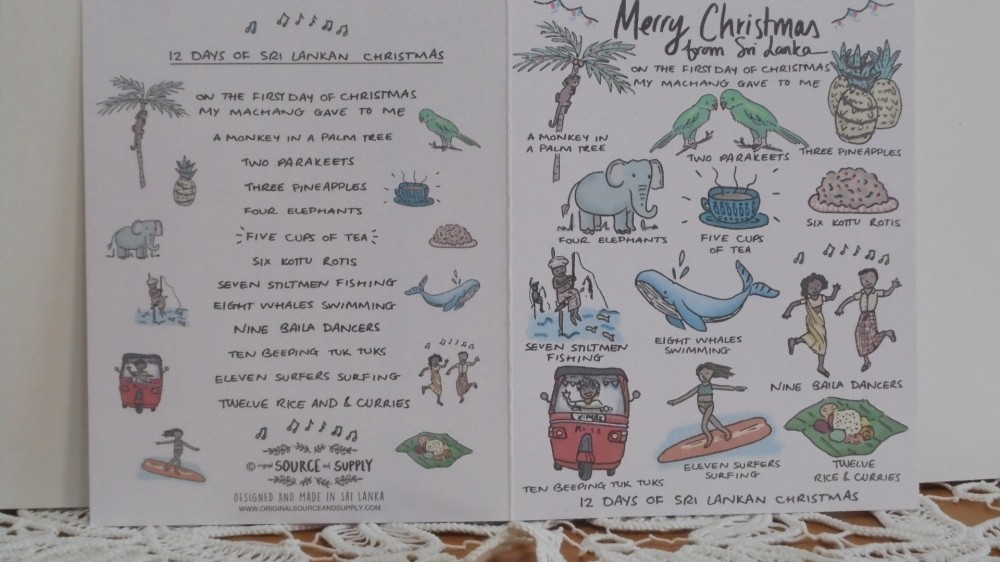 12 DAYS OF SRI LANKAN CHRISTMAS
ON THE FIRST DAY OF CHRISTMAS
MY MACHANG GAVE TO ME
A MONKEY IN A PALM TREE
TWO PARAKEETS
THREE PINEAPPLES
FOUR ELEPHANTS
FIVE CUPS OF TEA
SIX KOTTU ROTIS
SEVEN STILTMEN FISHING
EIGHT WHALES SWIMMING
NINE BAILA DANCERS
TEN BEEPING TUK TUKS
ELEVEN SURFERS SURFING
TWELVE RICE AND & CURRIES
© original SOURCE and SUPPLY
DESIGNED AND MADE IN SRI LANKA
WWW.ORIGINALSOURCEANDSUPPLY.COM
Merry Christmas
from Sri Lanka
ON THE FIRST DAY OF CHRISTMAS
MY MACHANG GAVE TO ME
A MONKEY IN
A PALM TREE
TWO PARAKEETS
THREE PINEAPPLES
FOUR ELEPHANTS
FIVE CUPS
OF TEA
SIX KOTTU ROTIS
SEVEN STILTMEN
FISHING
EIGHT WHALES
SWIMMING
NINE BAILA DANCERS
X-MAS
TEN BEEPING TUK TUKS
ELEVEN SURFERS
SURFING
TWELVE
RICE & CURRIES
12 DAYS OF SRI LANKAN CHRISTMAS